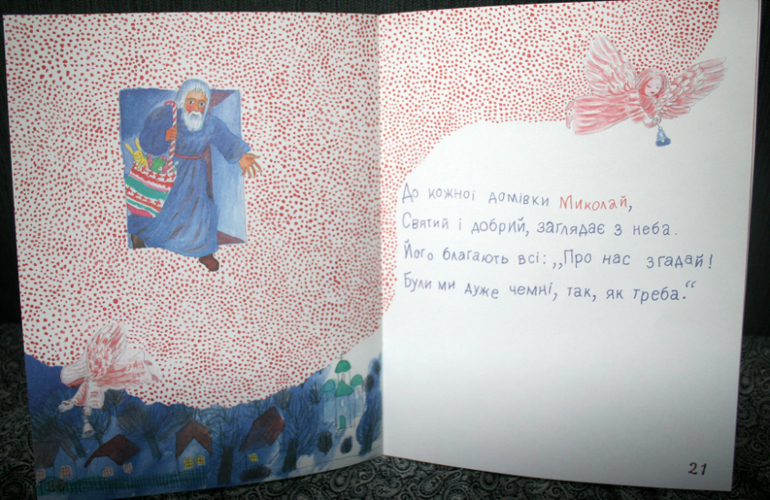 До кожної домівки Миколай,
Святий і добрий, заглядає з неба.
Його благають всі: „Про нас згадай!
Були ми дуже чемні, так, як треба.“
21